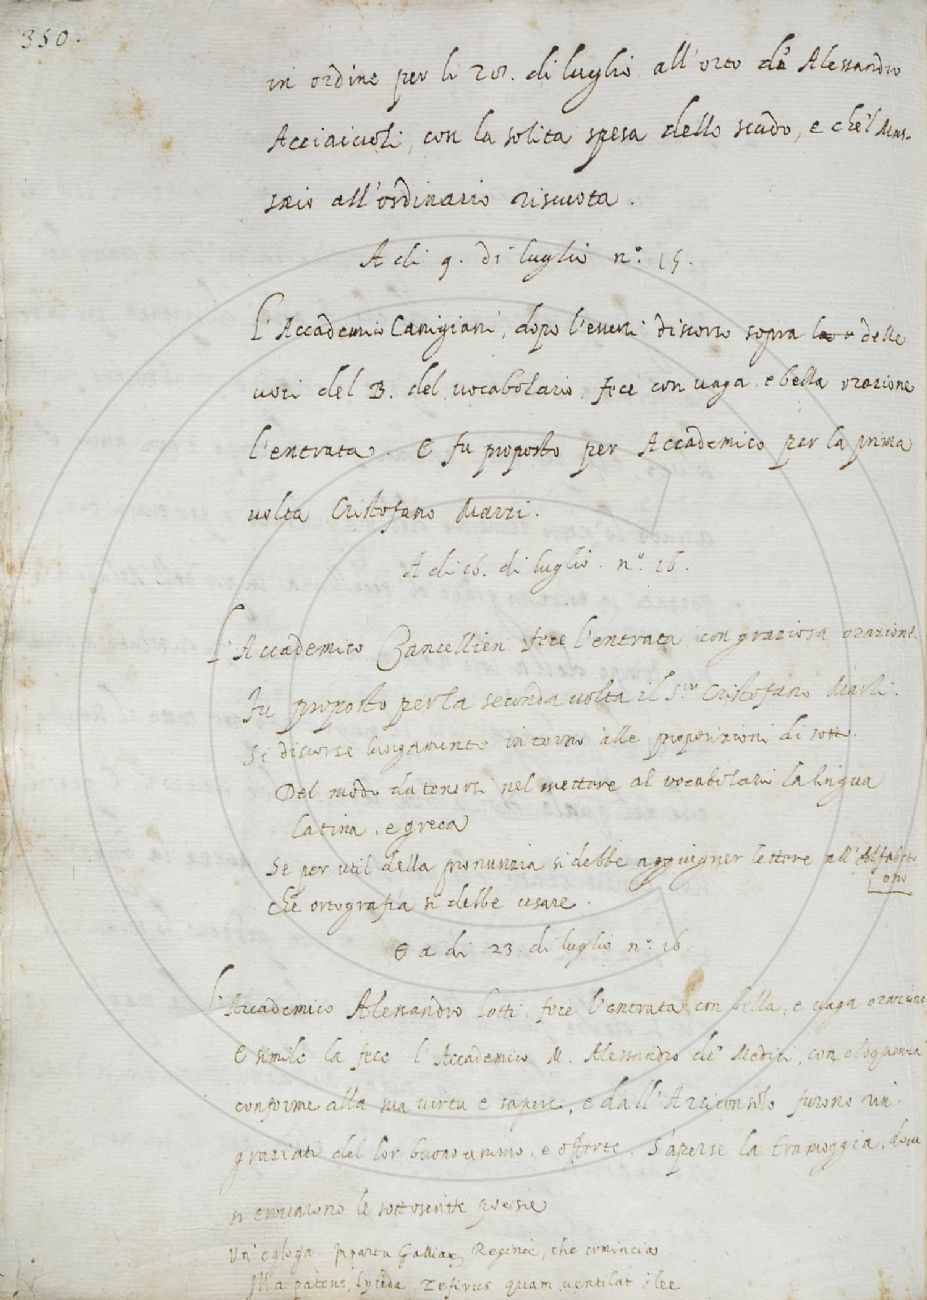 350.
in ordine per li 20. di luglio all'orto de Alessandro
Acciaiuoli, con la solita spesa dello scudo, e che'l Mas-
saio all'ordinario riscuota.
A di 9. di luglio n.° 15.
L'Accademico Canigiani, dopo l'esversi discorso sopra delle
voci del B. del vocabolario, fece con vaga, e bella orazione
l'entrata. E fu proposto per Accademico per la prima
volta Cristofano Marzi.
A di 16. di luglio. n.° 16.
L'Accademico Cancellieri fece l'entrata con graziosa orazione.
Fu proposto per la seconda volta il S.re Cristofano Marzi.
Si discorse lungamente intorno alle proposizioni di sotto.
Del modo da tenersi nel mettere al vocabolario la lingua
latina, e greca
Se per util della pronunzia si debbe aggiugner lettere all'Alfabeto
che ortografia si debbe usare.
E a di 23. di luglio n.° 16.
L'Accademico Alessandro Lotti fece l'entrata con bella, e vaga orazione
E simile la fece l'Accademico M. Alessandro de' Medici, con eloquenza
conforme alla sua virtu e sapere, e dall'Arciconsolo furono rin-
graziati del lor buono animo, e offerte. S'aperse la tramoggia, dove
si trovarono le sottoscritte poesie
Un'egloga In partu Galliae Reginae, che comincia
patens, Lycida, Zefirus quam ventilat